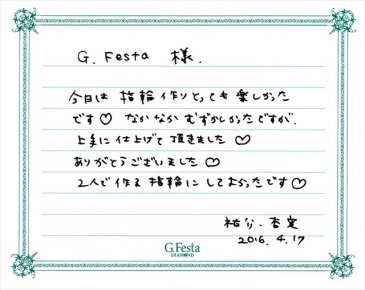 G. Festa 様.
今日は 指輪作りとっても楽しかった
です♡ なかなかむずかしかったですが.
上手に仕上げて頂きました♡
ありがとうございました♡
2人で作る指輪にしてよかったです♡
祐介.杏実
2016. 4. 17
G.Festa
DIAMOND